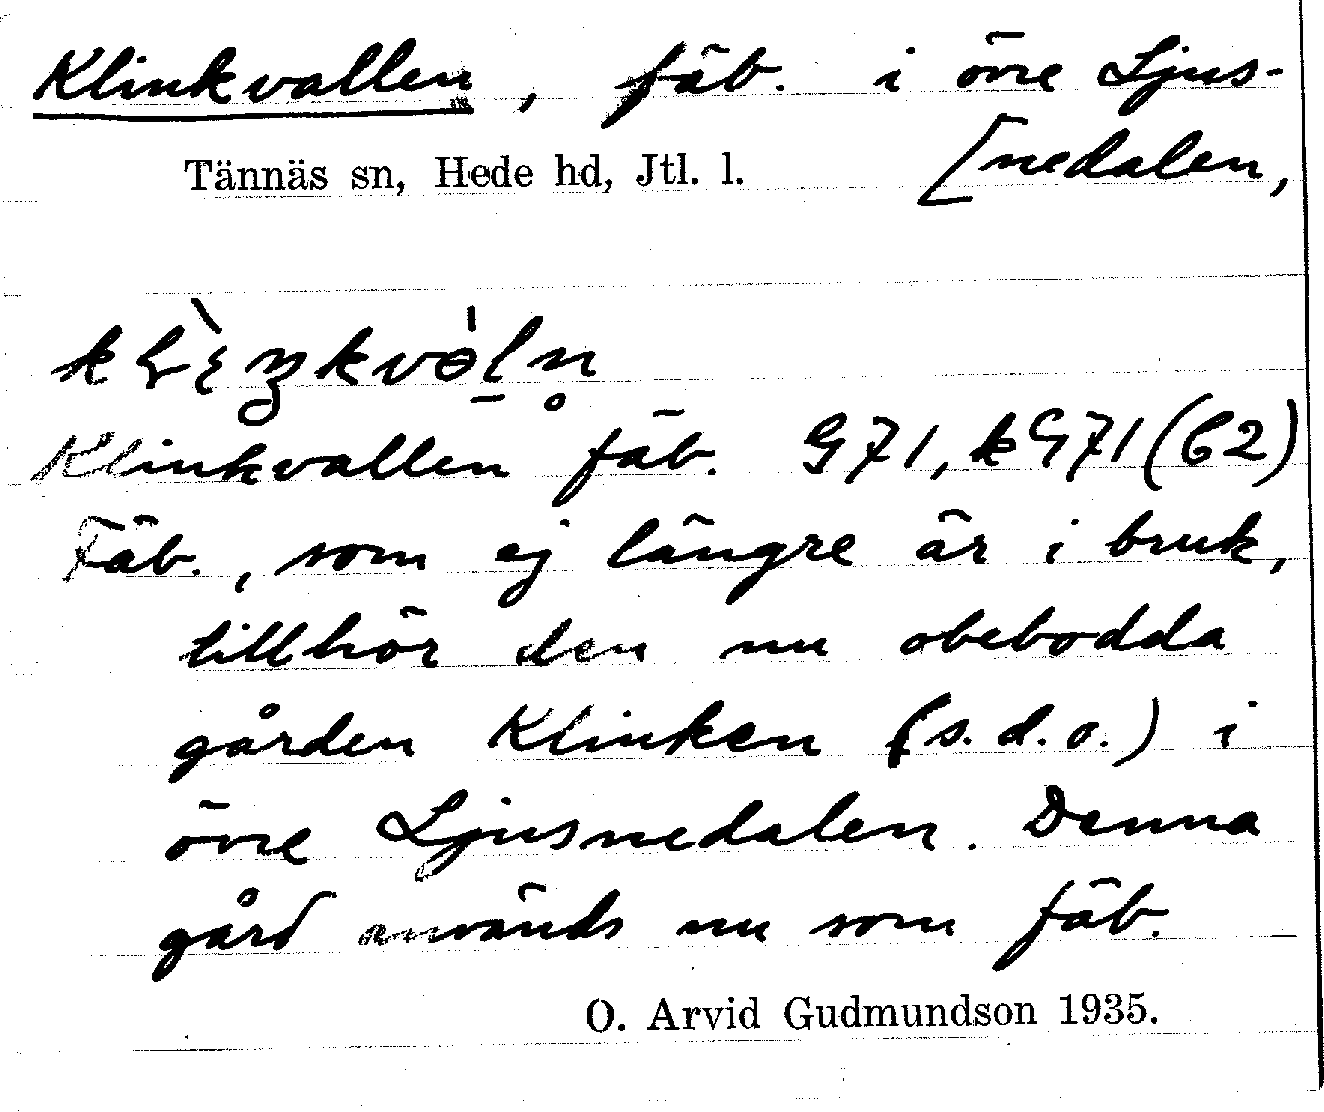 Klinkvallen, fäb. i övre Ljus-
[nedalen,
Tännäs sn, Hede hd, Jtl. l.
Klinkvallen fäb. G71, kG71(62)
Fäb., som ej längre är i bruk,
tillhör den nu obebodda
gården Klinken (s.d.o.) i
övre Ljusnedalen. Denna
gård används nu som fäb.
O. Arvid Gudmundson 1935.